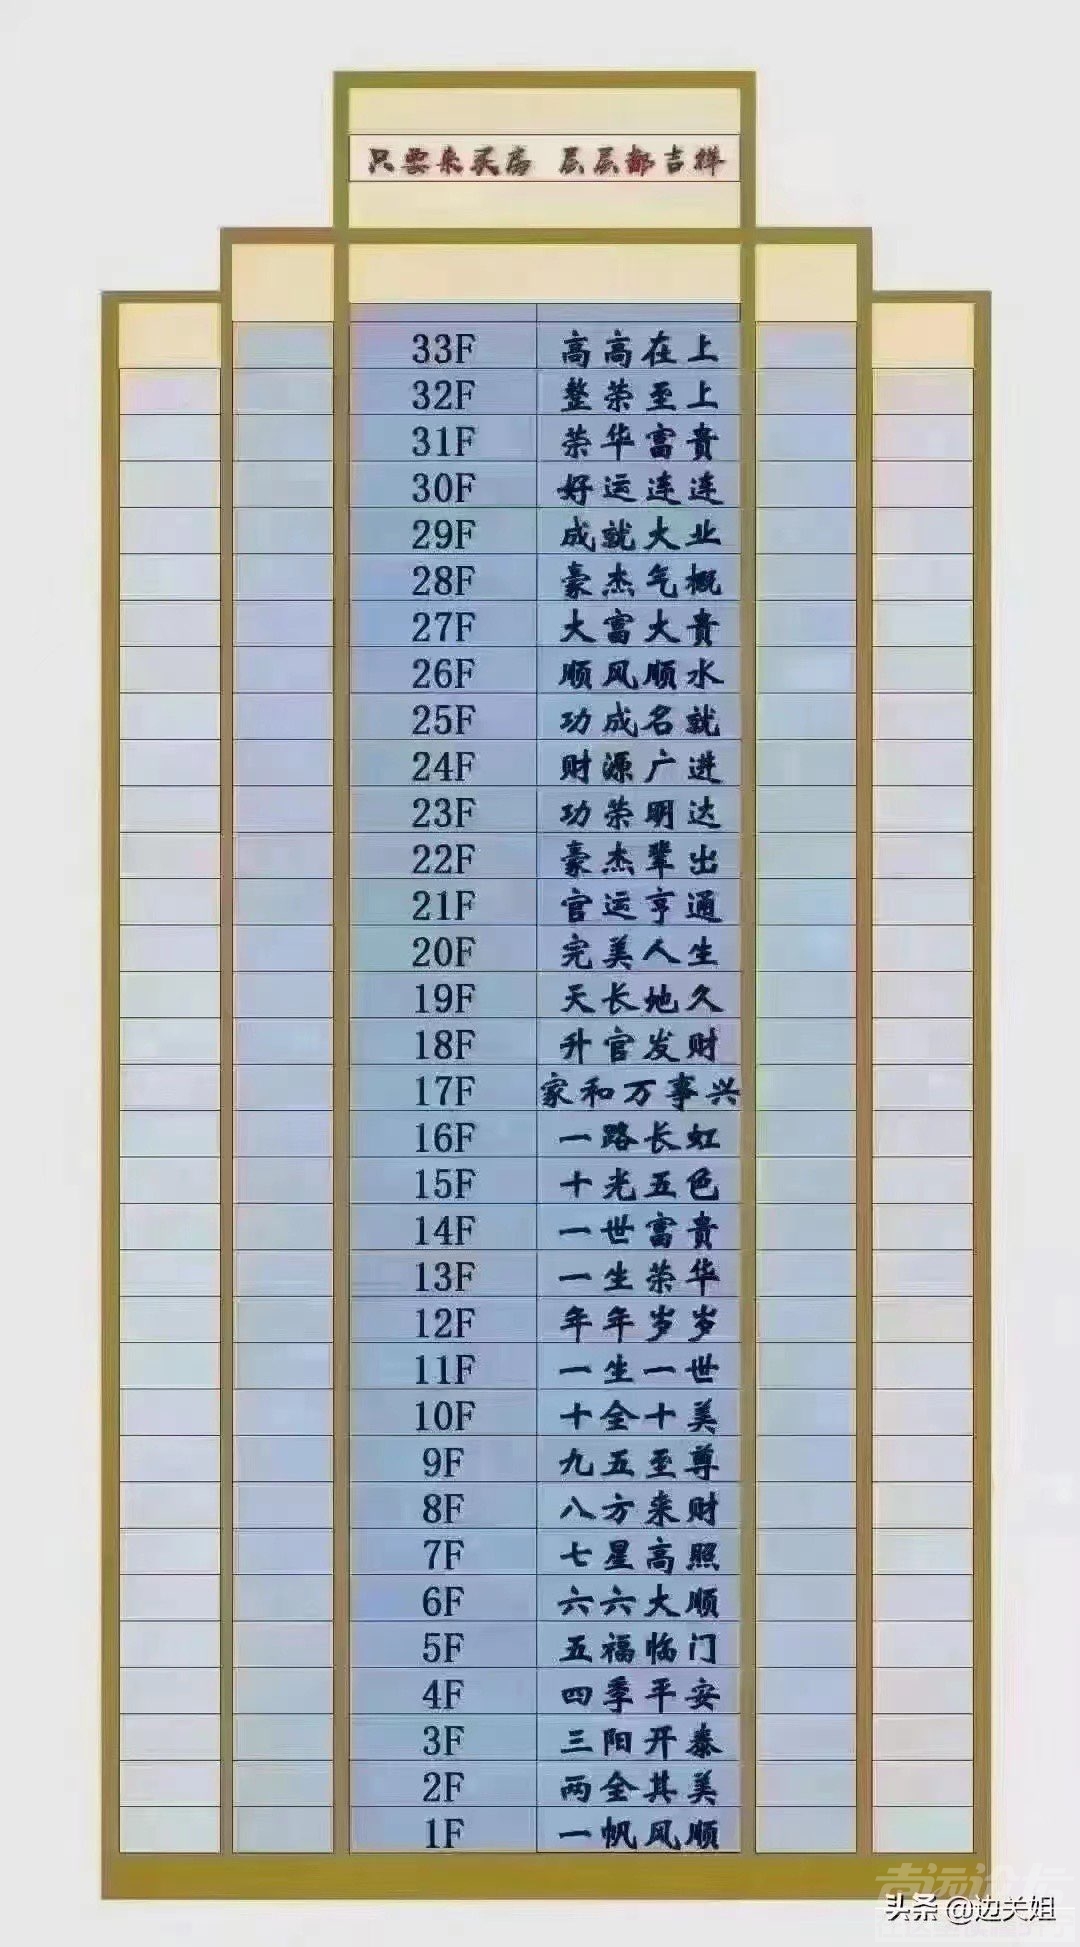 只要来买房 层层都吉祥
33F 高高在上
32F 整荣至上
31F 荣华富贵
30F 好运连连
29F 成就大业
28F 豪杰气概
27F 大富大贵
26F 顺风顺水
25F 功成名就
24F 财源广进
23F 功荣明达
22F 豪杰辈出
21F 官运亨通
20F 完美人生
19F 天长地久
18F 升官发财
17F 家和万事兴
16F 一路长虹
15F 十光五色
14F 一世富贵
13F 一生荣华
12F 年年岁岁
11F 一生一世
10F 十全十美
9F 九五至尊
8F 八方来财
7F 七星高照
6F 六六大顺
5F 五福临门
4F 四季平安
3F 三阳开泰
2F 两全其美
1F 一帆风顺
头条 @边关姐